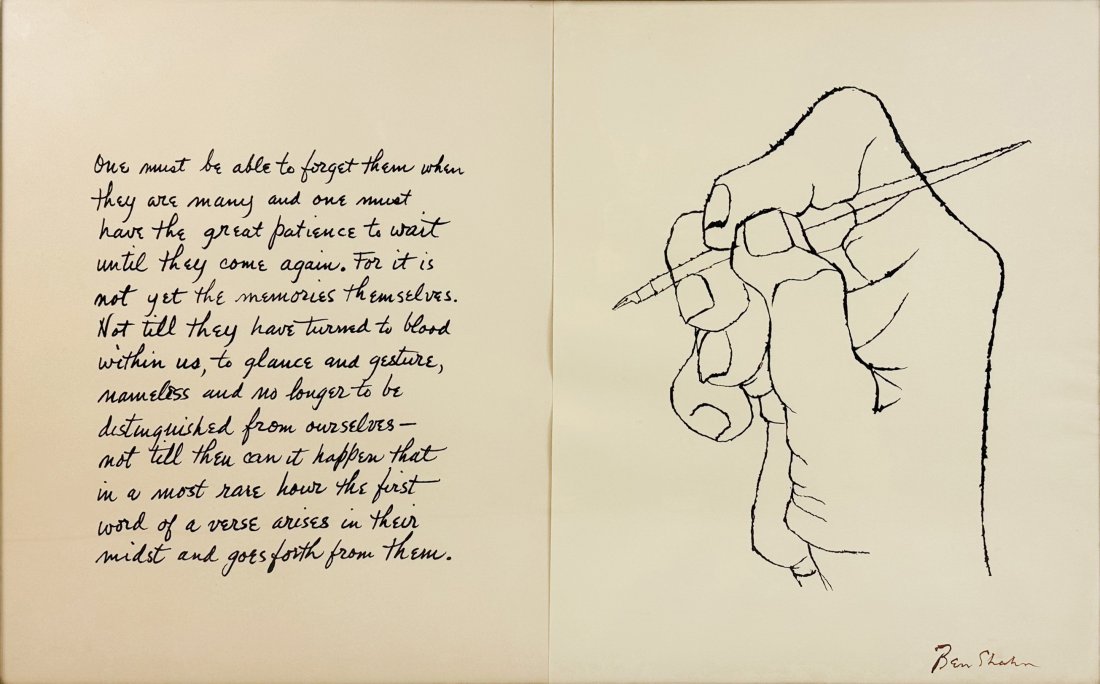 One must be able to forget them when
they are many and one must
have the great patience to wait
until they come again. For it is
not yet the memories themselves.
Not till they have turned to blood
within us, to glance and gesture,
nameless and no longer to be
distinguished from ourselves—
not till then can it happen that
in a most rare hour the first
word of a verse arises in their
midst and goes forth from them.
Ben Shahn